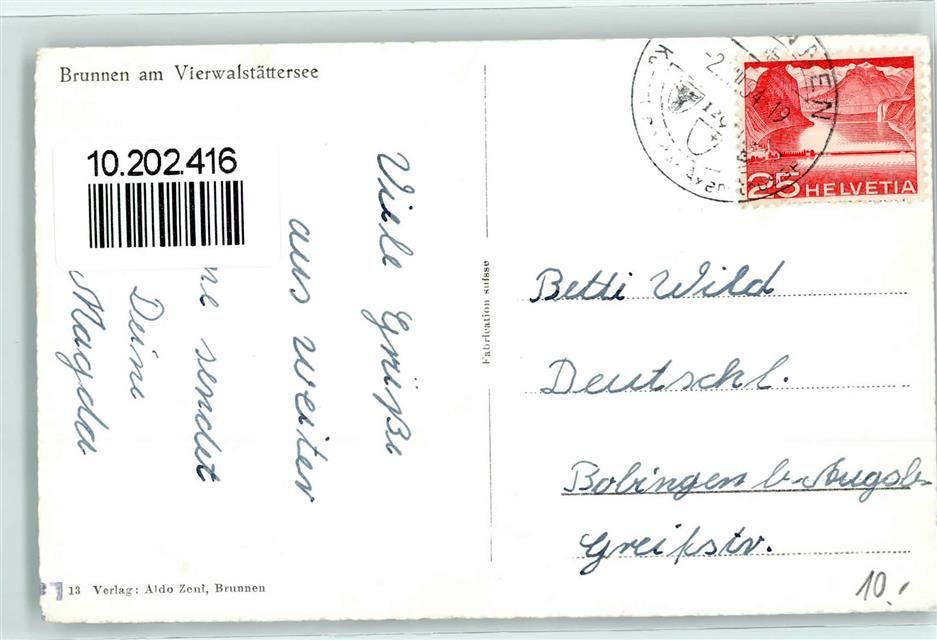 Brunnen am Vierwalstättersee
10.202.416
Viele Grüße
aus weiter
ne sendet
Deine
Magda
13 Verlag: Aldo Zenl, Brunnen
Fabrication suisse
25 HELVETIA
Betti Wild
Deutschl.
Bobingen b. Augsb.
Greifstr.
10.-